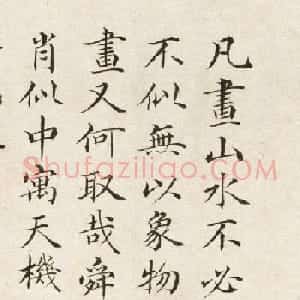 凡畫山水不必
不似無以象物
畫又何取哉舜
肖似中寓天機
Shufaziliao.com